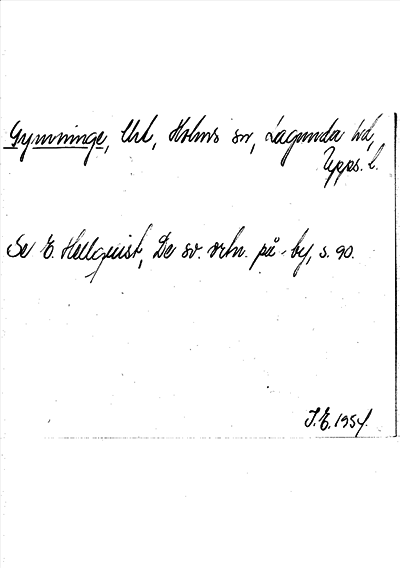 Gymminge, Uhl, Holms sn, Lagunda hd,
Upps. l.
Se E. Hellquist, De sv. ortn. på -by, s. 90.
I.E. 1954.